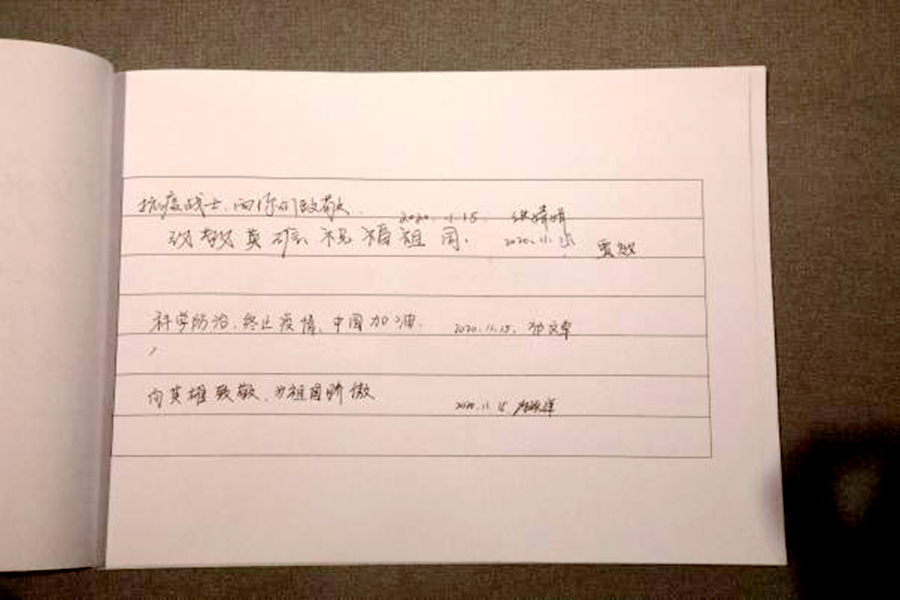 抗疫战士,向你们致敬. 2020.11.15.
致敬英雄 祝福祖国. 2020.11.15
科学防治、终止疫情、中国加油. 2020.11.15.
向英雄致敬、为祖国骄傲
2020.11.15